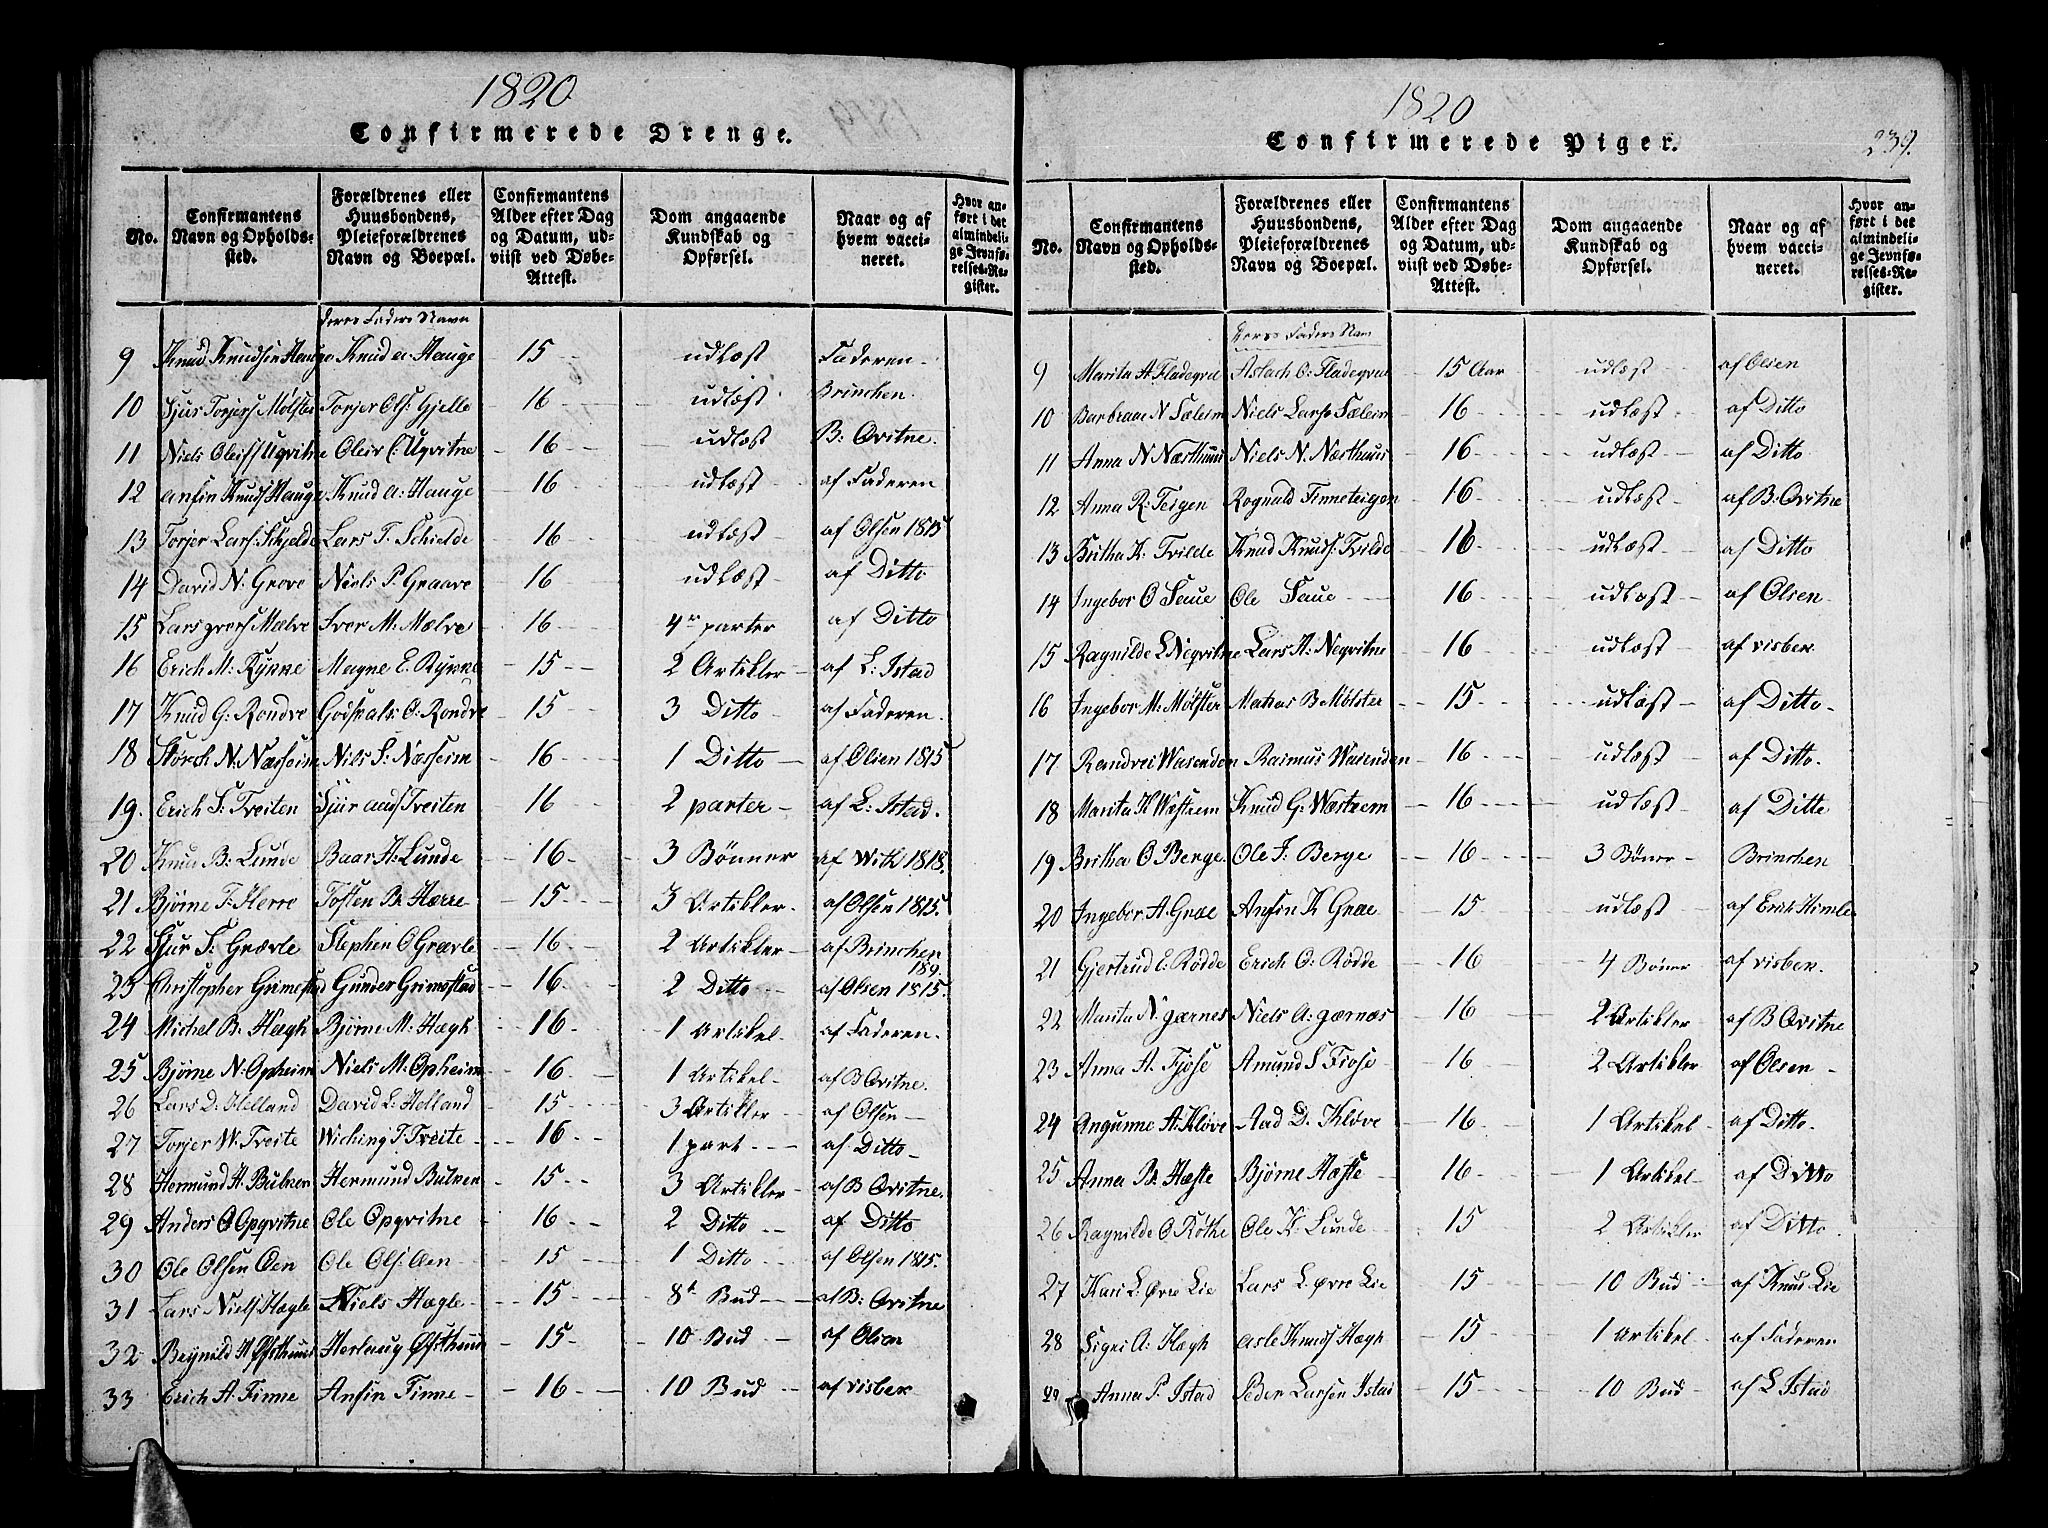 1820
Confirmerede Drenge.
No. | Confirmantens Navn og Opholdssted. | Forældrenes eller Huusbondens, Pleieforældrenes Navn og Boepæl. | Confirmantens Alder efter Dag og Datum, udviist ved Døbe-Attest. | Dom angaaende Kundskab og Opførsel. | Naar og af hvem vaccineret. | Hvor anført i det almindelige Jevnførelses-Register.
deres Faders Navn
9 Knud Knudsen Hauge | Knud A: Hauge | 15 | udlæst | Faderen
10 Sjur Torjers Mølster | Torjer Ols: Gjelle | 16 | udlæst | Brinchen.
11 Niels Oleifs Uqvitne | Oleiv L: Uqvitne | 16 | udlæst | B: Qvitne.
12 Anfin Knuds Hauge | Knud A: Hauge | 16 | udlæst | af Faderen
13 Torjer Lars: Skjelde | Lars T. Schielde | 16 | udlæst | af Olsen 1815
14 David N: Grove | Niels P. Graave | 16 | udlæst | af Ditto
15 Lars Ivers Mælve | Iver M: Mælve | 16 | 4re parter | af Ditto
16 Erich M: Rynne | Magne E. Rynne | 15 | 2 Artikler | af L: Istad
17 Knud G: Rondve | Godskalk O: Rondve | 15 | 3 Ditto | af Faderen.
18 Størch N: Næsheim | Nils S: Næsheim | 16 | 1 Ditto | af Olsen 1815
19. Erich S: Tveiten | Sjur Tveiten | 16 | 2 parter | af L: Istad.
20 Knud B: Lunde | Baar H: Lunde | 16 | 3 Bønner | af With 1818.
21 Bjørne T: Herre | Tosten B: Hærre | 15 | 3 Artikler. | af Olsen 1815.
22 Sjur S: Grævle | Stephen O Grævle | 16 | 2 Artikler | af Brinchen 189.
23 Christopher Grimestad | Gunder Grimestad | 16 | 2 Ditto | af Olsen 1815.
24 Michel B. Hægh | Bjørne M: Hægh | 16 | 1 Artikel | af Faderen.
25 Bjørne N: Opheim | Niels M: Opheim | 16 | 1 Artikel | af B Qvitne.
26 Lars D: Helland | David L: Helland | 15 | 3 Artikler | af Olsen
27 Torjer W. Tveite | Wiching T. Tveite | 16 | 1 part | af Ditto
28 Hermund H. Bulken | Hermund Bulken | 15 | 3 Artikler | af B Qvitne.
29 Anders O Opqvitne | Ole Opqvitne | 16 | 2 Ditto | af Ditto
30 Ole Olsen Øen | Ole Ols: Øen | 15 | 1 Ditto | af Olsen 1815.
31 Lars Niels Hægle | Niels Hægle | 15 | 8t Bud | af B: Qvitne
32 Brynild H Østhuus | Herlaug Østhuus | 15 | 10 Bud | af Olsen
33 Erich A. Finne | Anfin Finne | 16 | 10 Bud | af visber
1820
239.
Confirmerede Piger.
No. | Confirmantens Navn og Opholdssted. | Forældrenes eller Huusbondens, Pleieforældrenes Navn og Boepæl. | Confirmantens Alder efter Dag og Datum, udviist ved Døbe-Attest. | Dom angaaende Kundskab og Opførsel. | Naar og af hvem vaccineret. | Hvor anført i det almindelige Jevnførelses-Register.
deres Faders Navn
9 Marita A Fladeqvel | Aslach O: Fladeqvel | 15 Aar | udlæst | af Olsen
10 Barbraae N Sæleim | Niels Larss Sæleim | 16 | udlæst | af Ditto
11 Anna N Næsthuus | Niels N. Næsthuus | 16 | udlæst | af Ditto
12 Anna R: Teigen | Rognald Finneteigen | 16 | udlæst | af B: Qvitne
13 Britha K: Tvilde | Knud Knuds: Tvilde | 16 | udlæst | af Ditto
14 Ingebor O Saue | Ole Saue | 16 | udlæst | af Olsen
15 Ragnilde L Neqvitne | Lars A: Neqvitne | 16 | udlæst | af visber.
16 Ingebor M: Mølster | Mathias B Mølster | 15 | udlæst | af Ditto
17 Randvei Wasenden | Rasmus Wasenden | 16 | udlæst | af Ditto.
18 Marita K Wæstrem | Knud G: Wæstrem | 16 | udlæst | af Ditto
19 Britha O Berge. | Ole J: Berge | 16 | 3 Bøner | Brinchen
20 Ingebor A. Græe | Anfin K Græe | 15 | udlæst | af Erich Himle
21 Gjertrud E: Rødde | Erich O: Rødde | 16 | 4 Bøner | af visber.
22 Marita N. Gærnes | Niels A: Gærnæs | 16 | 2 Artikler | af B Qvitne
23 Anna A. Fjøse | Amund S Fiøse | 16 | 2 Artikler | af Olsen
24 Angunne A. Kløve | Aad D. Kløve | 16 | 1 Artikel | af Ditto
25 Anna B: Hæfte | Bjørne Hæfte | 16 | 1 Artikel | af Ditto
26 Ragnilde O Røthe | Ole K: Lunde | 15 | 2 Artikler | af Ditto
27 Kari L: Øvre Lie | Lars L: Øvre Lie | 15 | 10 Bud | af Knud Lie
28 Sigri A: Hægh | Asle Knuds Hægh | 15 | 1 Artikel | af Faderen
29 Anna P. Istad | Peder Larsen Istad | 15 | 10 Bud | af L Istad